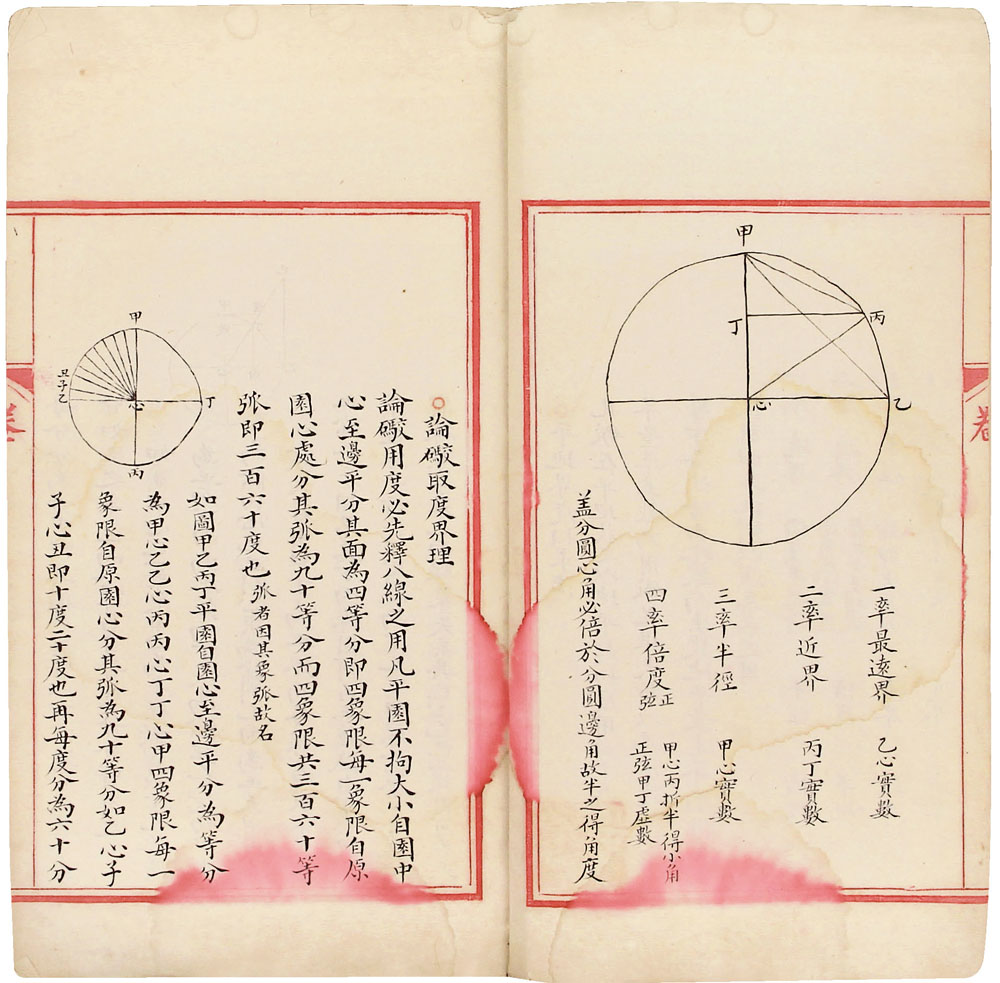 甲
丁
丙
心
乙
一率最遠界 乙心實數
二率近界 丙丁實數
三率半徑 甲心實數
四率倍度正弦 甲心丙折半得小角
正弦甲丁虛數
盖分圓心角必倍於分圓邊角故半之得角度
卷
○論礮取度界理
論礮用度必先釋八線之用凡平圜不拘大小自圜中
心至邊平分其面為四等分即四象限每一象限自原
圜心處分其弧為九十等分而四象限共三百六十等
弧即三百六十度也弧者因其象弧故名
如圖甲乙丙丁平圜自圜心至邊平分為等分
為甲心乙乙心丙丙心丁丁心甲四象限每一
象限自原圜心分其弧為九十等分如乙心子
子心丑即十度二十度也再每度分為六十分
甲
丑
子
乙
心
丁
丙
卷